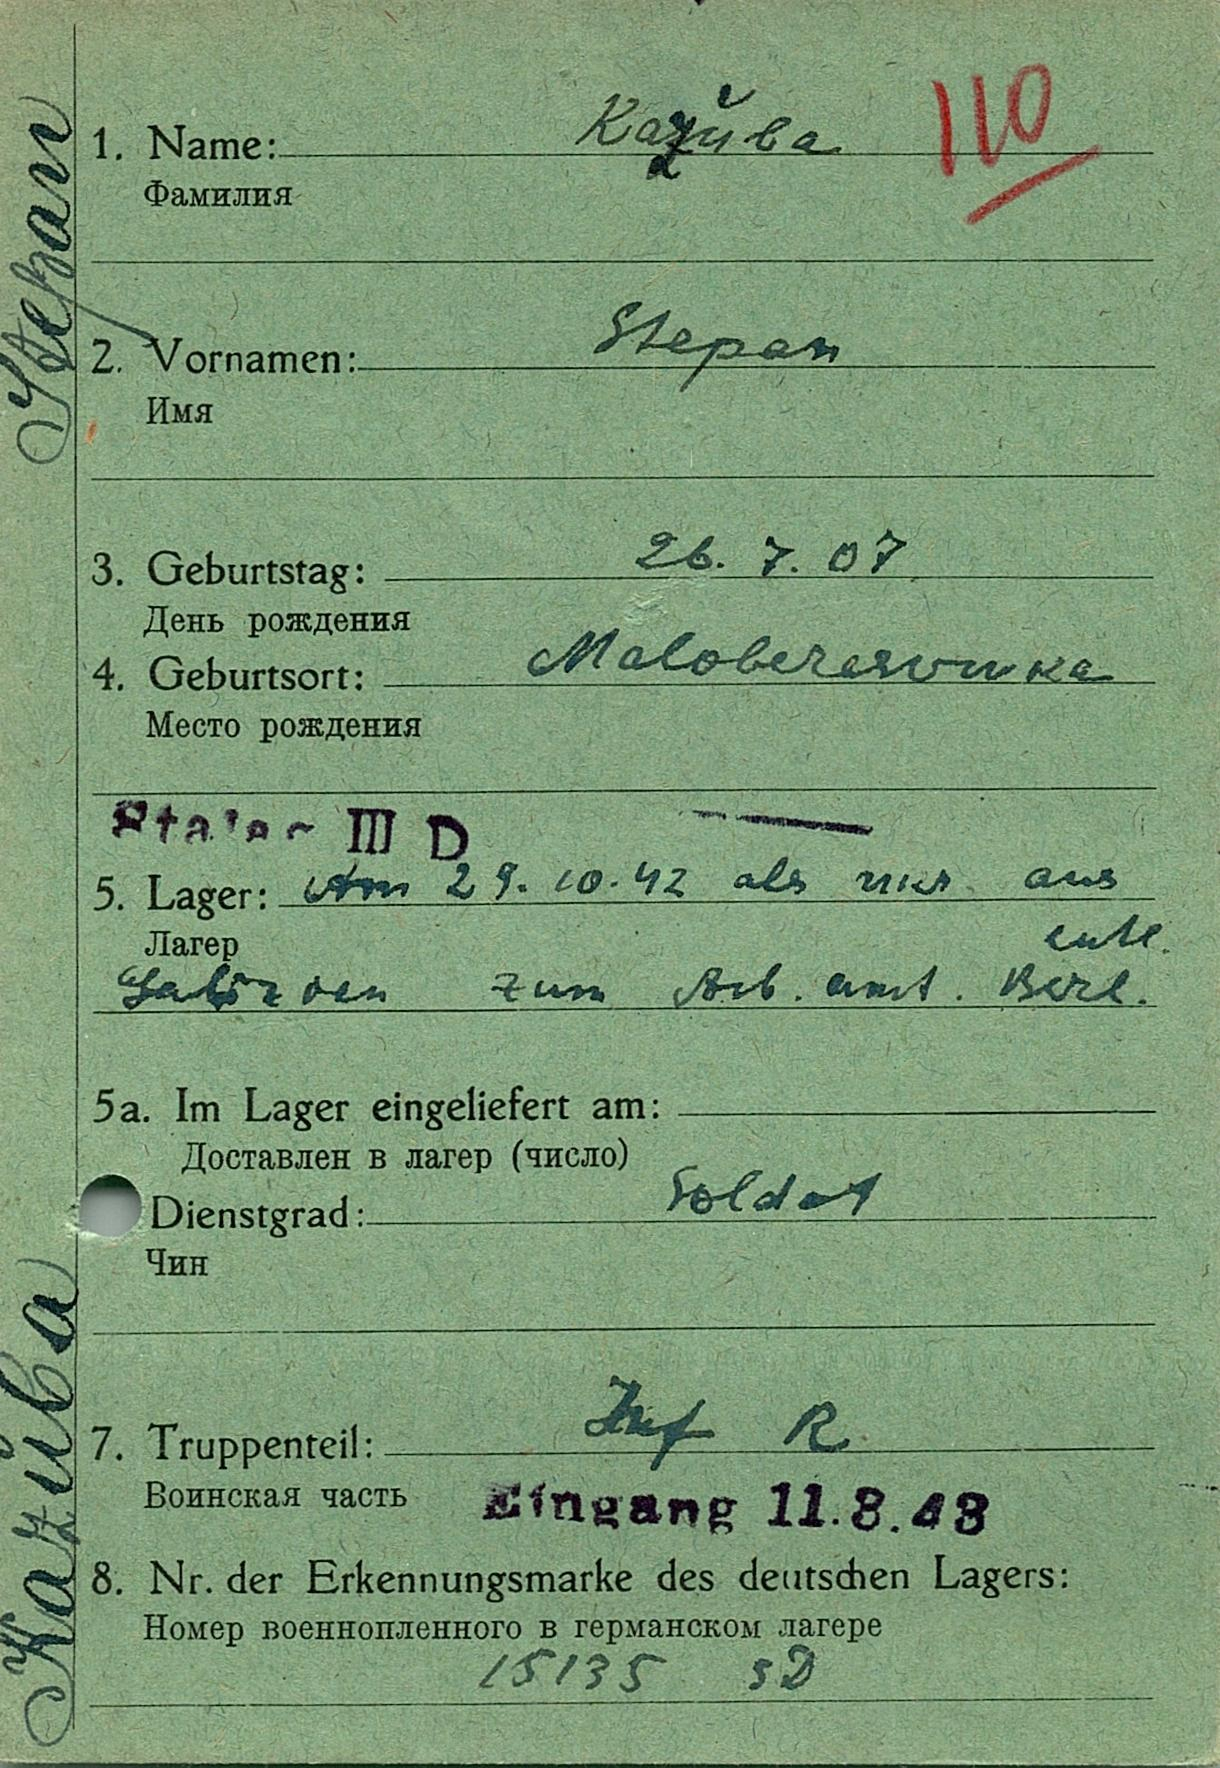 110
1. Name: Kazŭba
Фамилия
2. Vornamen: Stepan
Имя
3. Geburtstag: 26. 7. 07
День рождения
4. Geburtsort: Maloberesowka
Место рождения
Stalag III D
5. Lager: Am 29.10.42 als ukr. aus
Лагер
entl.
Galizien zum Arb. amt. Berl.
5a. Im Lager eingeliefert am:
Доставлен в лагер (число)
Dienstgrad: Soldat
Чин
7. Truppenteil: Inf R
Воинская часть
Eingang 11.8.43
8. Nr. der Erkennungsmarke des deutschen Lagers:
Номер военнопленного в германском лагере
15135 3D
Kazŭba Stepan